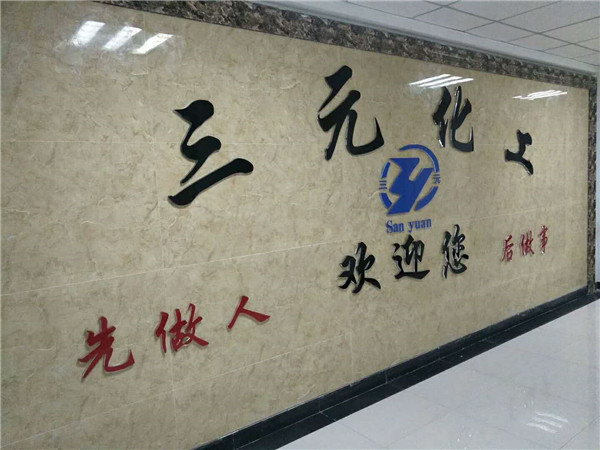 三元化工
三 元
San yuan
欢迎您
先做人
后做事